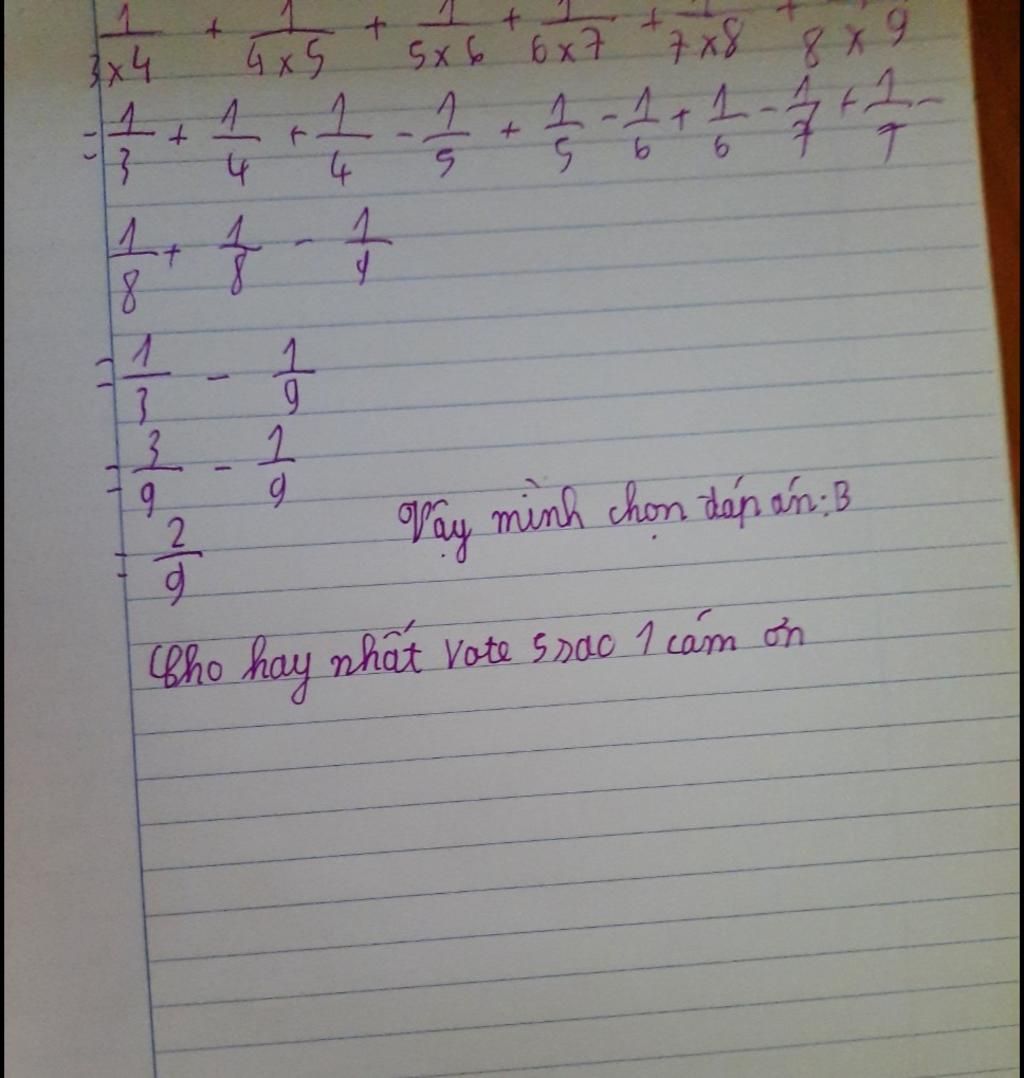 1/3×4 + 1/4×5 + 1/5×6 + 1/6×7 + 1/7×8 + 1/8×9
= 1/3 + 1/4 + 1/4 - 1/5 + 1/5 - 1/6 + 1/6 - 1/7 + 1/7 -
1/8 + 1/8 - 1/9
= 1/3 - 1/9
= 3/9 - 1/9
= 2/9 Vậy mình chọn đáp án: B
Cho hay nhất vote 5 sao 1 cám ơn